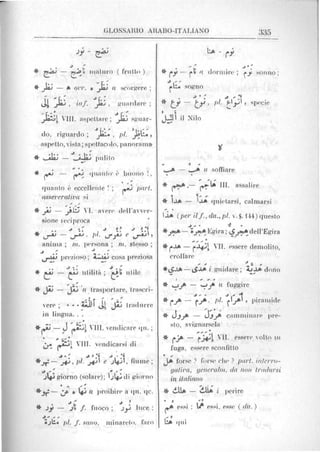 GLOSSARIO ARABO-ITALIANO 335
نور - نضج
* نضج — نضيج maturo (frutto).
* نظر — a ocr. a scorgere;
نظر, inf. نظر, guardare;
VIII. aspettare; نظر sguardo, riguardo; منظر, pl. مناظر,
aspetto, vista; spettacolo, panorama
* نظف — نظيف pulito
* نعم — نعم quanto è buono!,
quanto è eccellente!; نعم part.
asseverativa sì
* VI. avere dell'avversione reciproca
* نفس — نفس, pl. نفوس e أنفس,
anima; m. persona; m. stesso;
نفيس prezioso; cosa preziosa
* نفع — نفع utilità; نافع utile
* نقل — نقل a trasportare, trascrivere; tradurre
in lingua. . .
* نقم — VIII. vendicare qu.;
VIII. vendicarsi di
* نهر — نهر, pl. أنهر e أنهار, fiume;
نهار giorno (solare); نهارا di giorno
* نهى — نهى a proibire a qu. qc.
* نور — نار f. fuoco; نور luce;
pl. f. sano, minareto, faro
هنا - نوم
* نوم — نام a dormire; نوم sonno;
نائم sogno
* نوع — نوع, pl. أنواع, specie
النيل il Nilo
ه
* هب — هب a soffiare
* هجم — هاجم III. assalire
* هدأ — هدأ quietarsi, calmarsi
هذا (per il f., du., pl. v. § 144) questo
* هجر — هجرة Egira; هجري dell'Egira
* هدم — VII. essere demolito,
crollare
* هدى — هدى i guidare; dono
* هرب — هرب a fuggire
* هرم — هرم, pl. أهرام, piramide
* هرول — هرول camminare presto, svignarsela
* هزم — انهزم VII. essere volto in
fuga, essere sconfitto
هل forse? forse che? part. interrogativa, generalm. da non tradursi
in italiano
* هلك — هلك i perire
هم essi; هما essi, esse (du.)
هنا qui